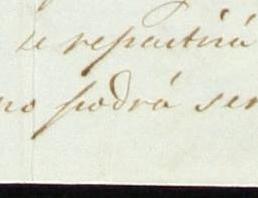 se repartirá
no podrá ser